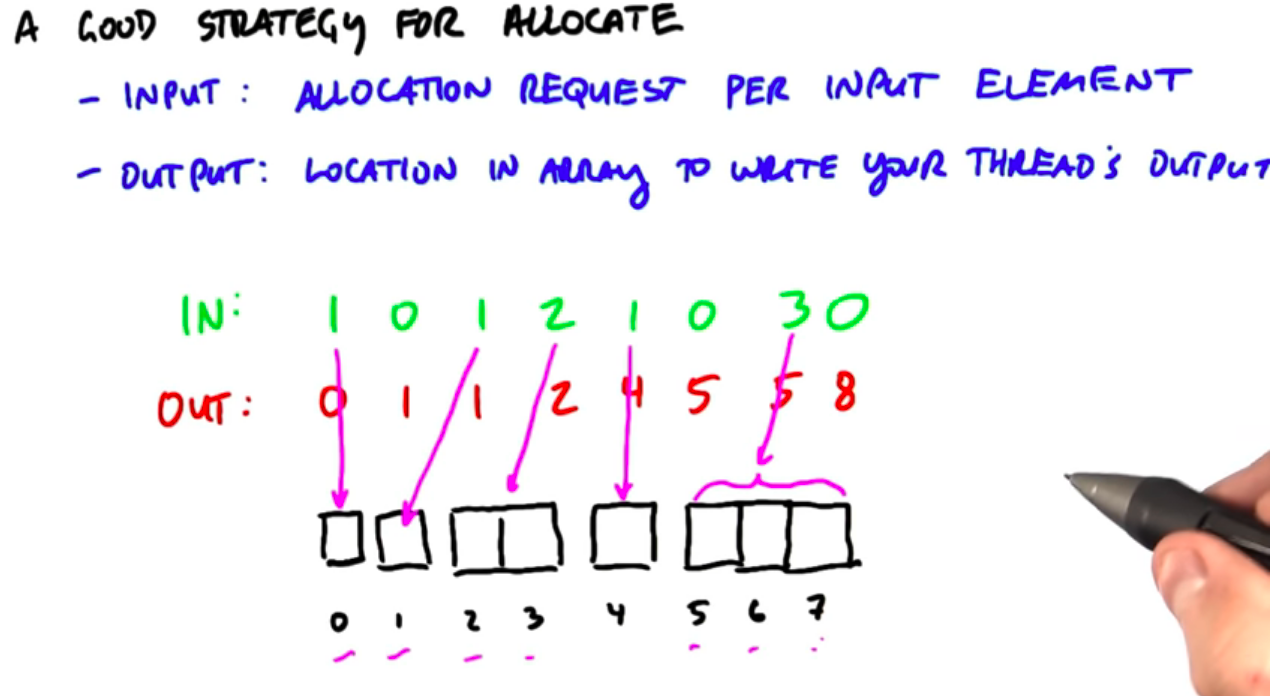 A GOOD STRATEGY FOR ALLOCATE
- INPUT: ALLOCATION REQUEST PER INPUT ELEMENT
- OUTPUT: LOCATION IN ARRAY TO WRITE YOUR THREAD'S OUTPUT
IN: 1 0 1 2 1 0 3 0
OUT: 0 1 1 2 4 5 5 8
0 1 2 3 4 5 6 7